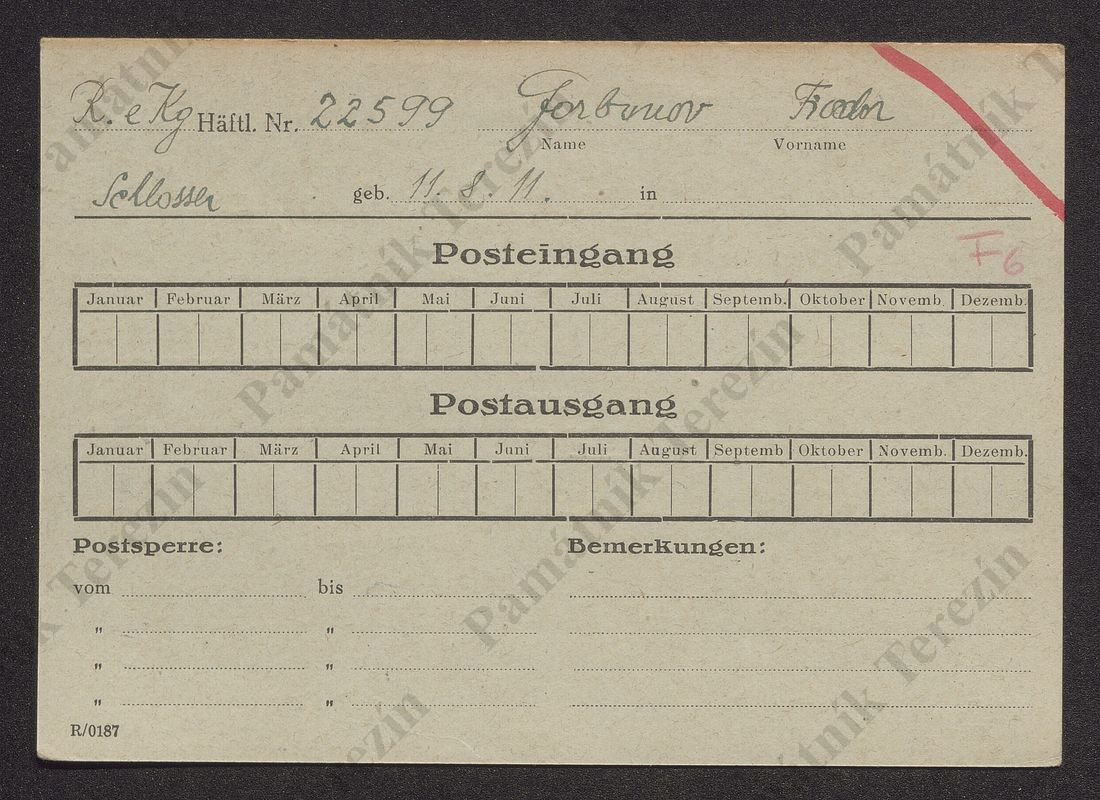 R. e Kg Häftl. Nr. 22599 Gorbunov Fiodor
Name Vorname
Schlosser geb. 11. 8. 11. in
F6
Posteingang
Januar Februar März April Mai Juni Juli August Septemb. Oktober Novemb. Dezemb.
Postausgang
Januar Februar März April Mai Juni Juli August Septemb Oktober Novemb. Dezemb.
Postsperre: Bemerkungen:
vom bis
" "
" "
" "
R/0187
Památník Terezín